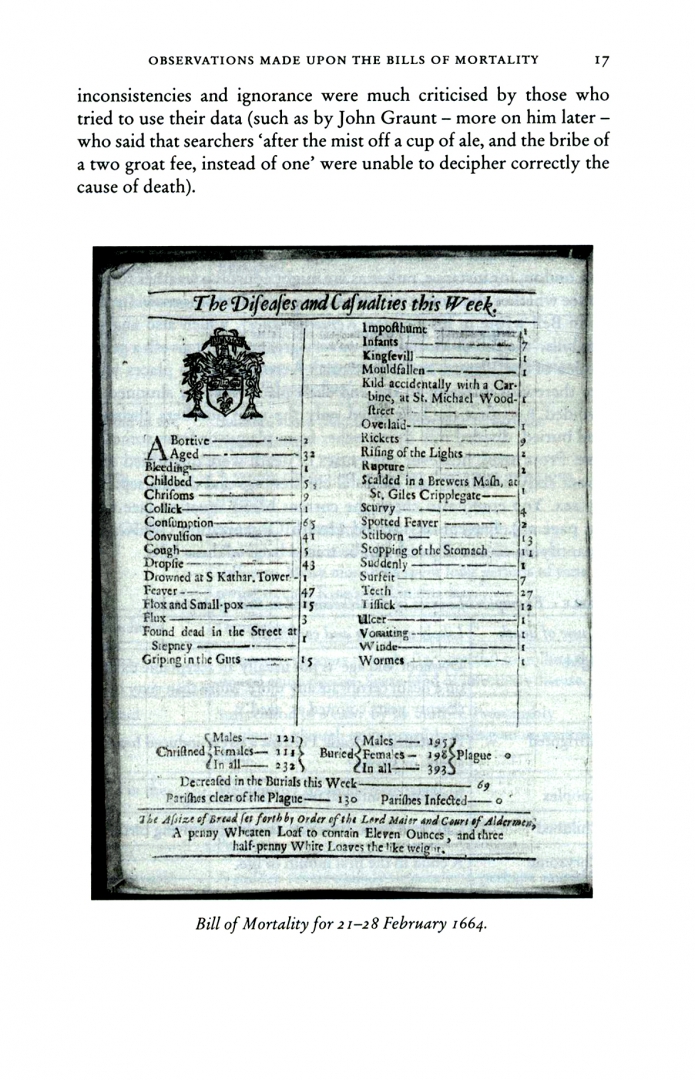 OBSERVATIONS MADE UPON THE BILLS OF MORTALITY 17
inconsistencies and ignorance were much criticised by those who
tried to use their data (such as by John Graunt – more on him later –
who said that searchers ‘after the mist off a cup of ale, and the bribe of
a two groat fee, instead of one’ were unable to decipher correctly the
cause of death).
The Diſeaſes and Caſualties this Week.
ABortive 2
Aged 32
Bleeding 1
Childbed 5
Chriſoms 9
Collick 1
Conſumption 65
Convulſion 41
Cough 5
Dropſie 43
Drowned at S Kathar. Tower 1
Feaver 47
Flox and Small-pox 15
Flux 3
Found dead in the Street at
Stepney 1
Griping in the Guts 15
Impoſthume 1
Infants 7
Kingſevill 1
Mouldfallen 1
Kild accidentally with a Car-
bine, at St. Michael Wood-
ſtreet 1
Overlaid 1
Rickets 9
Riſing of the Lights
Rupture
Scalded in a Brewers Maſh, at
St. Giles Cripplegate 1
Scurvy 4
Spotted Feaver 2
Stilborn 13
Stopping of the Stomach 11
Suddenly 1
Surfeit 7
Teeth 27
Tiſſick 12
Ulcer 1
Vomiting 1
Winde 1
Wormes 1
Chriſtned
Males 121
Females 111
In all 232
Buried
Males 195
Females 198
In all 393
Plague 0
Decreaſed in the Burials this Week 69
Pariſhes clear of the Plague 130 Pariſhes Infected 0
The Aſsize of Bread ſet forth by Order of the Lord Maior and Court of Aldermen,
A penny Wheaten Loaf to contain Eleven Ounces, and three
half-penny White Loaves the like weight.
Bill of Mortality for 21–28 February 1664.